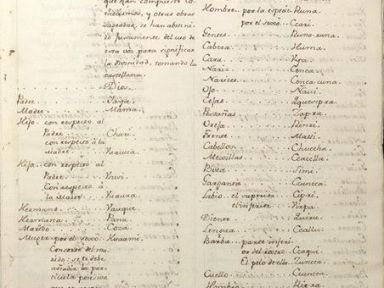 que han compuesto Ca-
tecismos, y otras obras
sagradas, se han absteni-
do juramente del uso de
esta voz para significar
la Divinidad, tomando la
castellana
Dios.
Padre Yaya
Madre Mama
Hijo con respecto al
Padre Churi
con respecto á la
madre Huahua
Hija con respecto al
Padre Ususi
Con respecto á
la madre
Hermano
Hermana Pana
Marido Coza
Muger por el sexo Huarmi
Consorte del ma-
rido: se le debe
añadir la par-
ticula
Hombre por la especie Runa
por el sexo Ccari
Gentes Runa-cuna
Cabeza Huma
Cara Uya
Nariz Cenca
Narices Cenca-cuna
Ojo Naui
Cejas
Pestañas
Oreja Rinri
Frente Matti
Cabello Chuccha
Mexillas Ccaclla
Boca Simi
Garganta Cunca
Labio el superior
el inferior Virpa
Diente Quiru
Lengua Ccallu
Barba parte inferi-
or del rostro
El pelo de ella
Cuello Cunca
Hombro